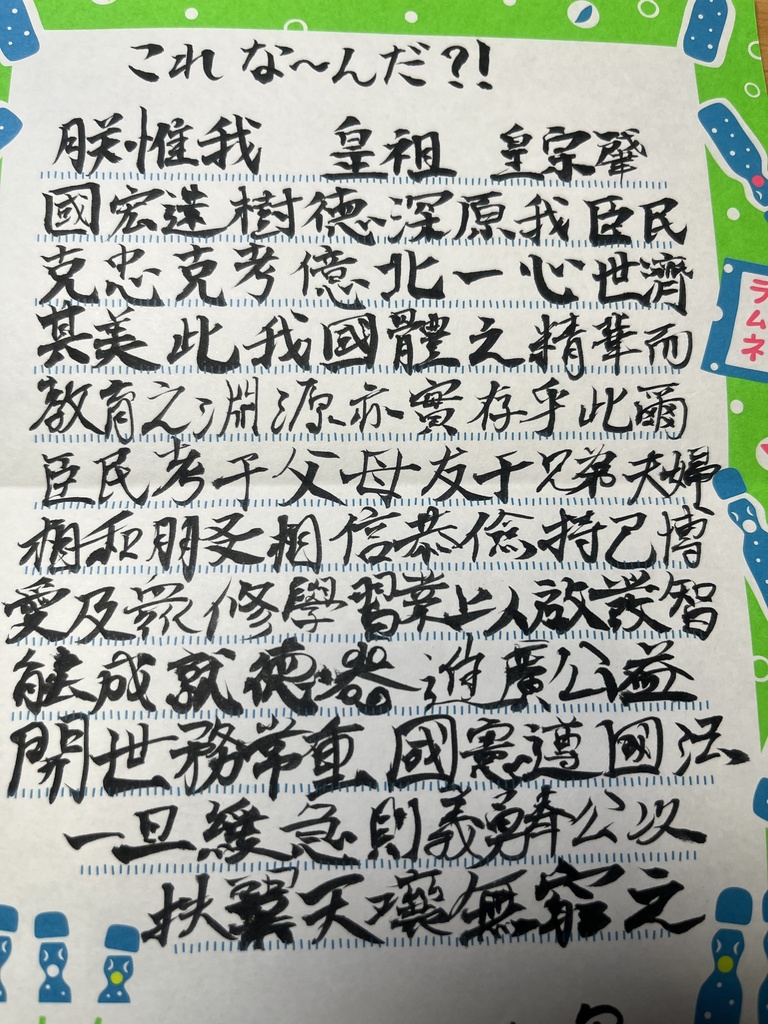 これな〜んだ?!
朕惟我 皇祖 皇宗肇
國宏遠樹德深原我臣民
克忠克孝億兆一心世濟
其美此我國體之精華而
教育之淵源亦實存乎此爾
臣民孝于父母友于兄弟夫婦
相和朋友相信恭儉持己博
愛及眾修學習業以啟發智
能成就德器進廣公益
開世務常重國憲遵國法
一旦緩急則義勇奉公以
扶翼天壤無窮之
ラムネ